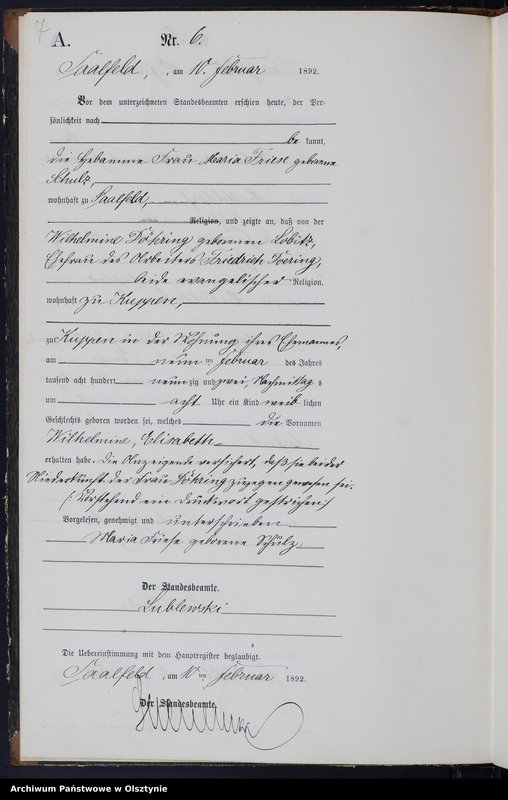 7
A. Nr. 6.
Saalfeld, am 10. Februar 1892.
Vor dem unterzeichneten Standesbeamten erschien heute, der Per-
sönlichkeit nach
be kannt,
die Hebamme Frau Maria Friese geborene
Schulz,
wohnhaft zu Saalfeld,
Religion, und zeigte an, daß von der
Wilhelmine Döhring geborenen Lobitz,
Ehefrau des Arbeiters Friedrich Döhring,
beide evangelischer Religion,
wohnhaft zu Kuppen,
zu Kuppen in der Wohnung ihres Ehemannes,
am neun ten Februar des Jahres
tausend acht hundert neun zig und zwei, Nachmittag s
um acht Uhr ein Kind weib lichen
Geschlechts geboren worden sei, welches die Vornamen
Wilhelmine, Elisabeth
erhalten habe. Die Anzeigende versichert, daß sie bei der
Niederkunft der Frau Döhring zugegen gewesen sei.
/: Vorstehend ein Druckwort gestrichen :/
Vorgelesen, genehmigt und unterschrieben
Maria Friese geborene Schulz,
Der Standesbeamte.
Lublewski
Die Uebereinstimmung mit dem Hauptregister beglaubigt.
Saalfeld, am 10 ten Februar 1892.
Der Standesbeamte.
Archiwum Państwowe w Olsztynie